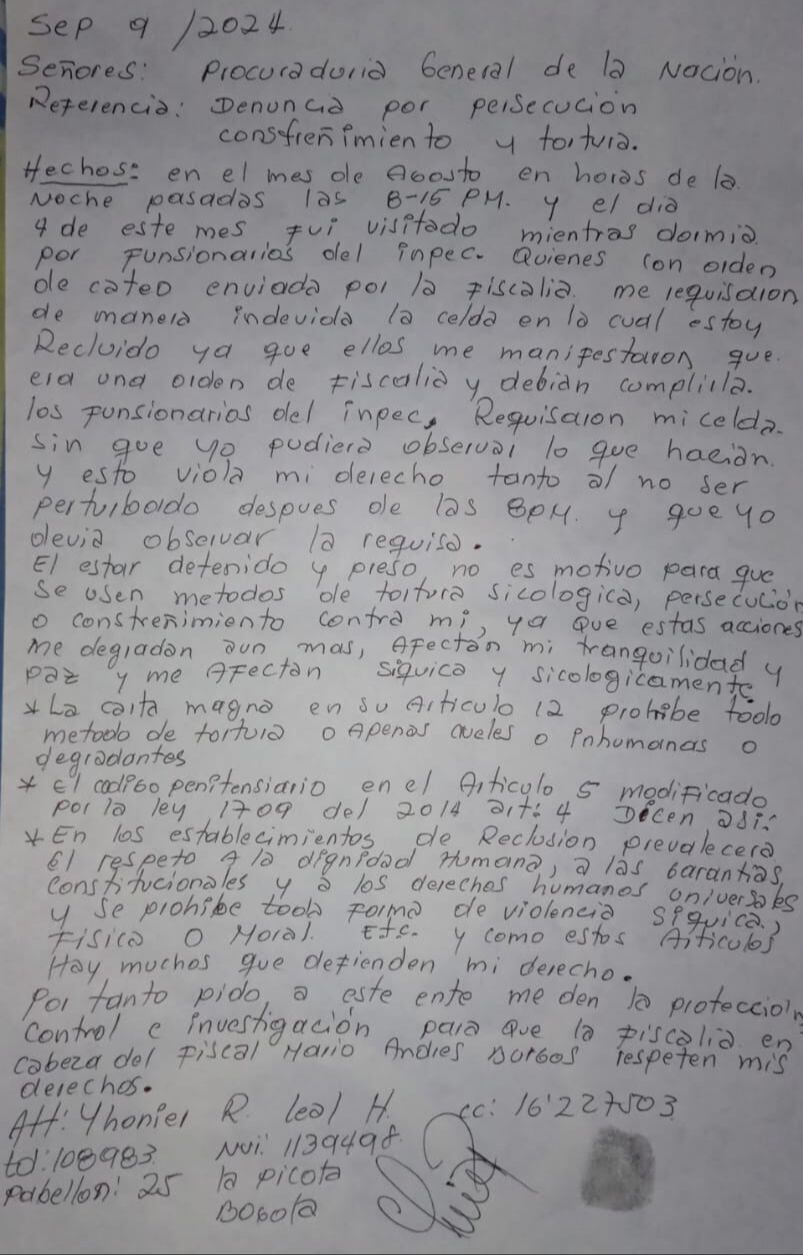 Sep 9 /2024.
Señores: Procuraduria General de la Nación.
Referencia: Denuncia por persecución
constreñimiento y tortura.
Hechos: en el mes de Agosto en horas de la
Noche pasadas las 8-15 PM. y el dia
4 de este mes fui visitado mientras dormia
por funsionarios del inpec. Quienes con orden
de cateo enviada por la fiscalia. me requisaron
de manera indevida la celda en la cual estoy
Recluido ya que ellos me manifestaron que.
era una orden de fiscalia y debian cumplirla.
los funsionarios del inpec, Requisaron mi celda.
sin que yo pudiera observar lo que hacian.
y esto viola mi derecho tanto al no ser
perturbado despues de las 8PM. y que yo
devia observar la requisa.
El estar detenido y preso no es motivo para que
se usen metodos de tortura sicologica, persecución
o constreñimiento contra mi, ya que estas acciones
me degradan aun mas, Afectan mi tranquilidad y
paz y me Afectan siquica y sicologicamente
* La carta magna en su Articulo 12 prohibe todo
metodo de tortura o Apenas crueles o inhumanas o
degradantes
* El codigo penitensiario en el Articulo 5 modificado
por la ley 1709 del 2014 art: 4 Dicen asi:
* En los establecimientos de Reclusion prevalecera
El respeto A la dignidad Humana, a las Garantias
constitucionales y a los derechos humanos universales
y se prohibe toda forma de violencia siquica,
Fisica o Moral. Etc. y como estos Articulos
Hay muchos que defienden mi derecho.
Por tanto pido, a este ente me den la protección
control e investigación para que la fiscalia en
cabeza del fiscal Mario Andres Burgos respeten mis
derechos.
Att: Yhonier R. leal H. cc: 16'227503
td: 108983. Nui: 1139498.
pabellon: 25 la picota
Bogota